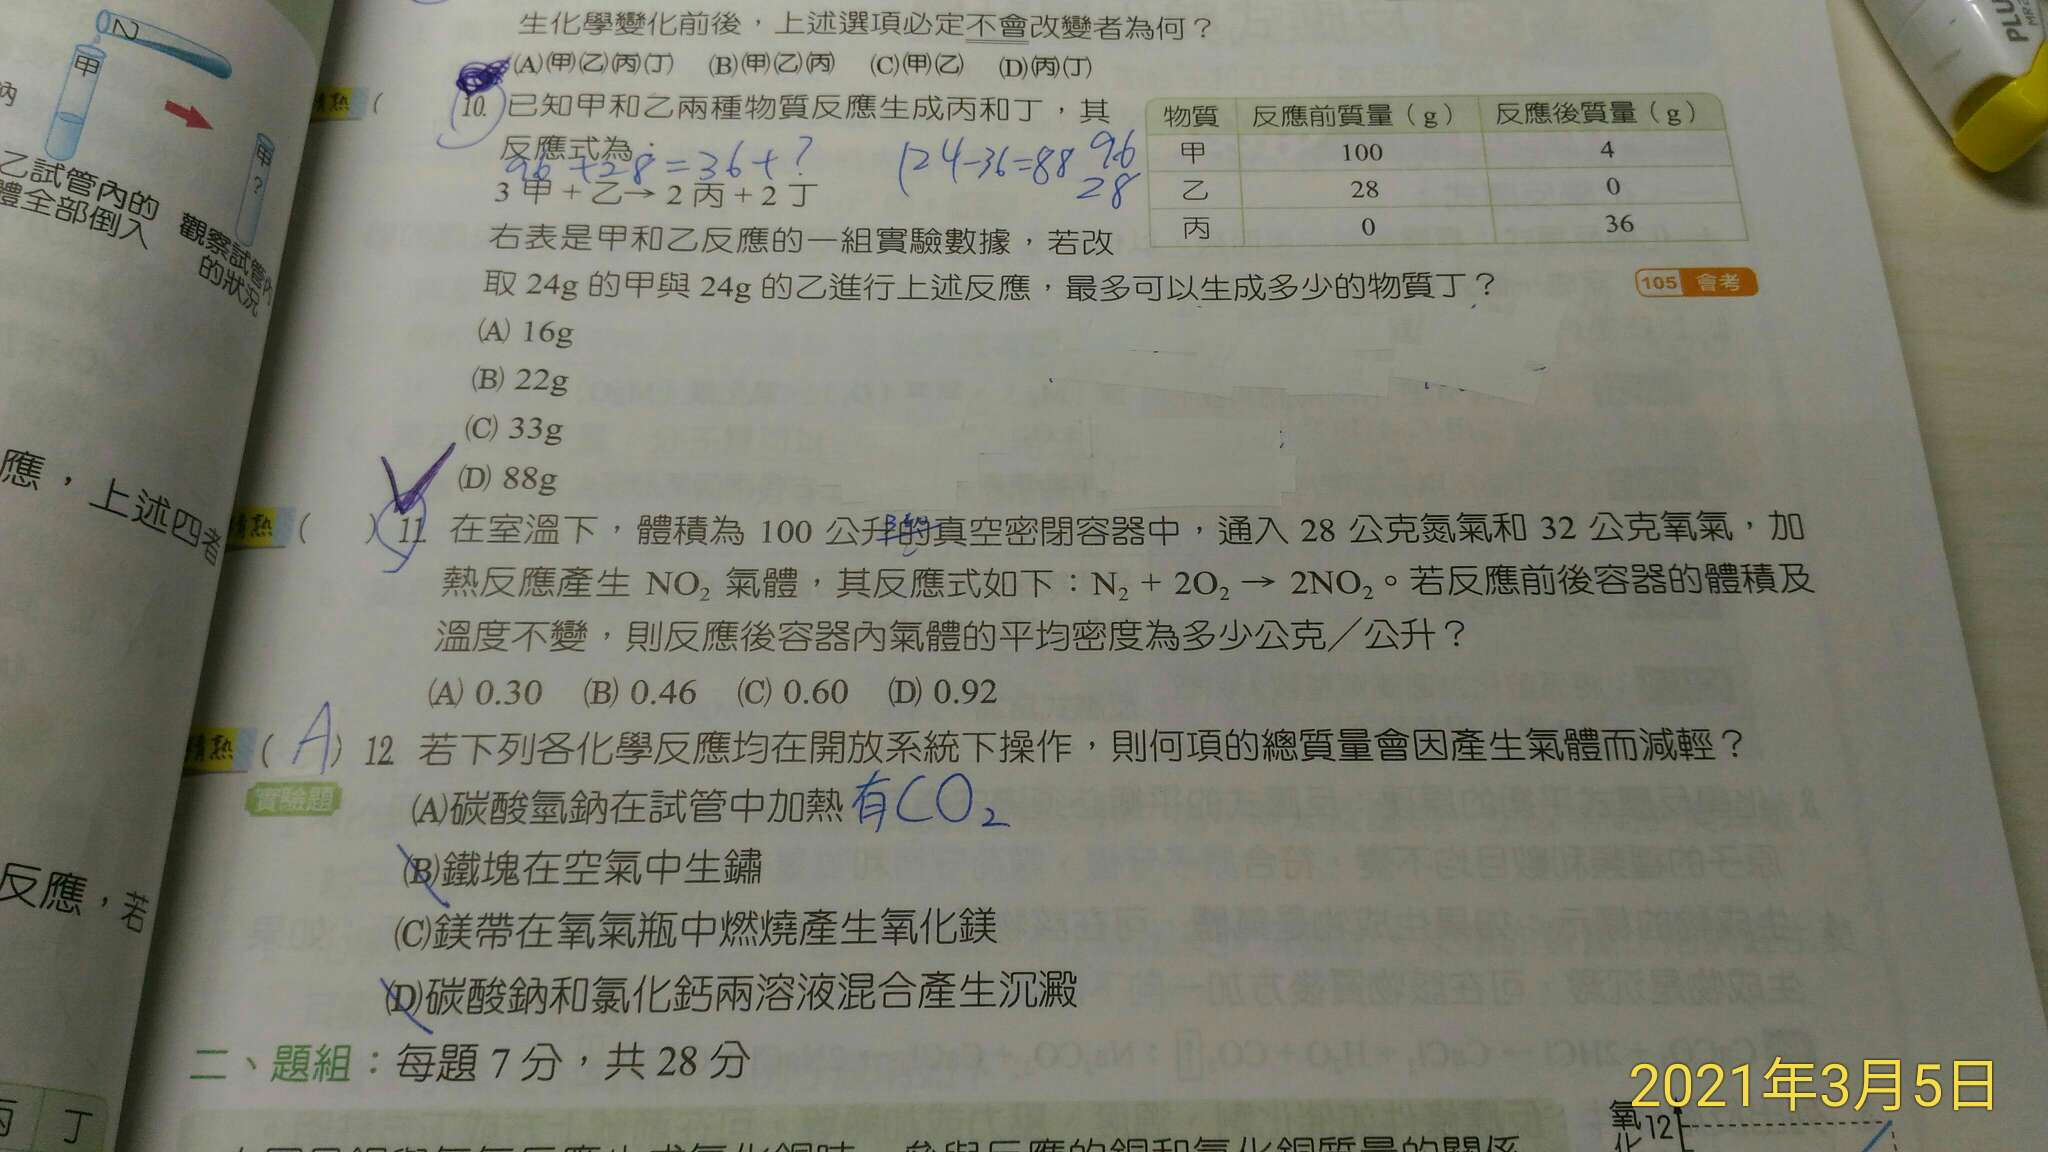 生化學變化前後，上述選項必定不會改變者為何？
(A)(甲)(乙)(丙)(丁) (B)(甲)(乙)(丙) (C)(甲)(乙) (D)(丙)(丁)
精熟 ( 10. 已知甲和乙兩種物質反應生成丙和丁，其
反應式為：
96 + 28 = 36 + ? 124-36=88 96
28
3 甲 + 乙 → 2 丙 + 2 丁
右表是甲和乙反應的一組實驗數據，若改
取 24g 的甲與 24g 的乙進行上述反應，最多可以生成多少的物質丁？
105 會考
物質 反應前質量（g） 反應後質量（g）
甲 100 4
乙 28 0
丙 0 36
(A) 16g
(B) 22g
(C) 33g
(D) 88g
精熟 ( ) 11. 在室溫下，體積為 100 公升的真空密閉容器中，通入 28 公克氮氣和 32 公克氧氣，加
熱反應產生 NO₂ 氣體，其反應式如下：N₂ + 2O₂ → 2NO₂。若反應前後容器的體積及
溫度不變，則反應後容器內氣體的平均密度為多少公克／公升？
(A) 0.30 (B) 0.46 (C) 0.60 (D) 0.92
精熟 ( A ) 12. 若下列各化學反應均在開放系統下操作，則何項的總質量會因產生氣體而減輕？
實驗題
(A)碳酸氫鈉在試管中加熱 有CO₂
(B)鐵塊在空氣中生鏽
(C)鎂帶在氧氣瓶中燃燒產生氧化鎂
(D)碳酸鈉和氯化鈣兩溶液混合產生沉澱
二、題組：每題 7 分，共 28 分
氧
化
12
2021年3月5日
乙
甲
鈉
乙試管內的
體全部倒入
甲
?
觀察試管內
的狀況
應，上述四者
反應，若
丙 丁